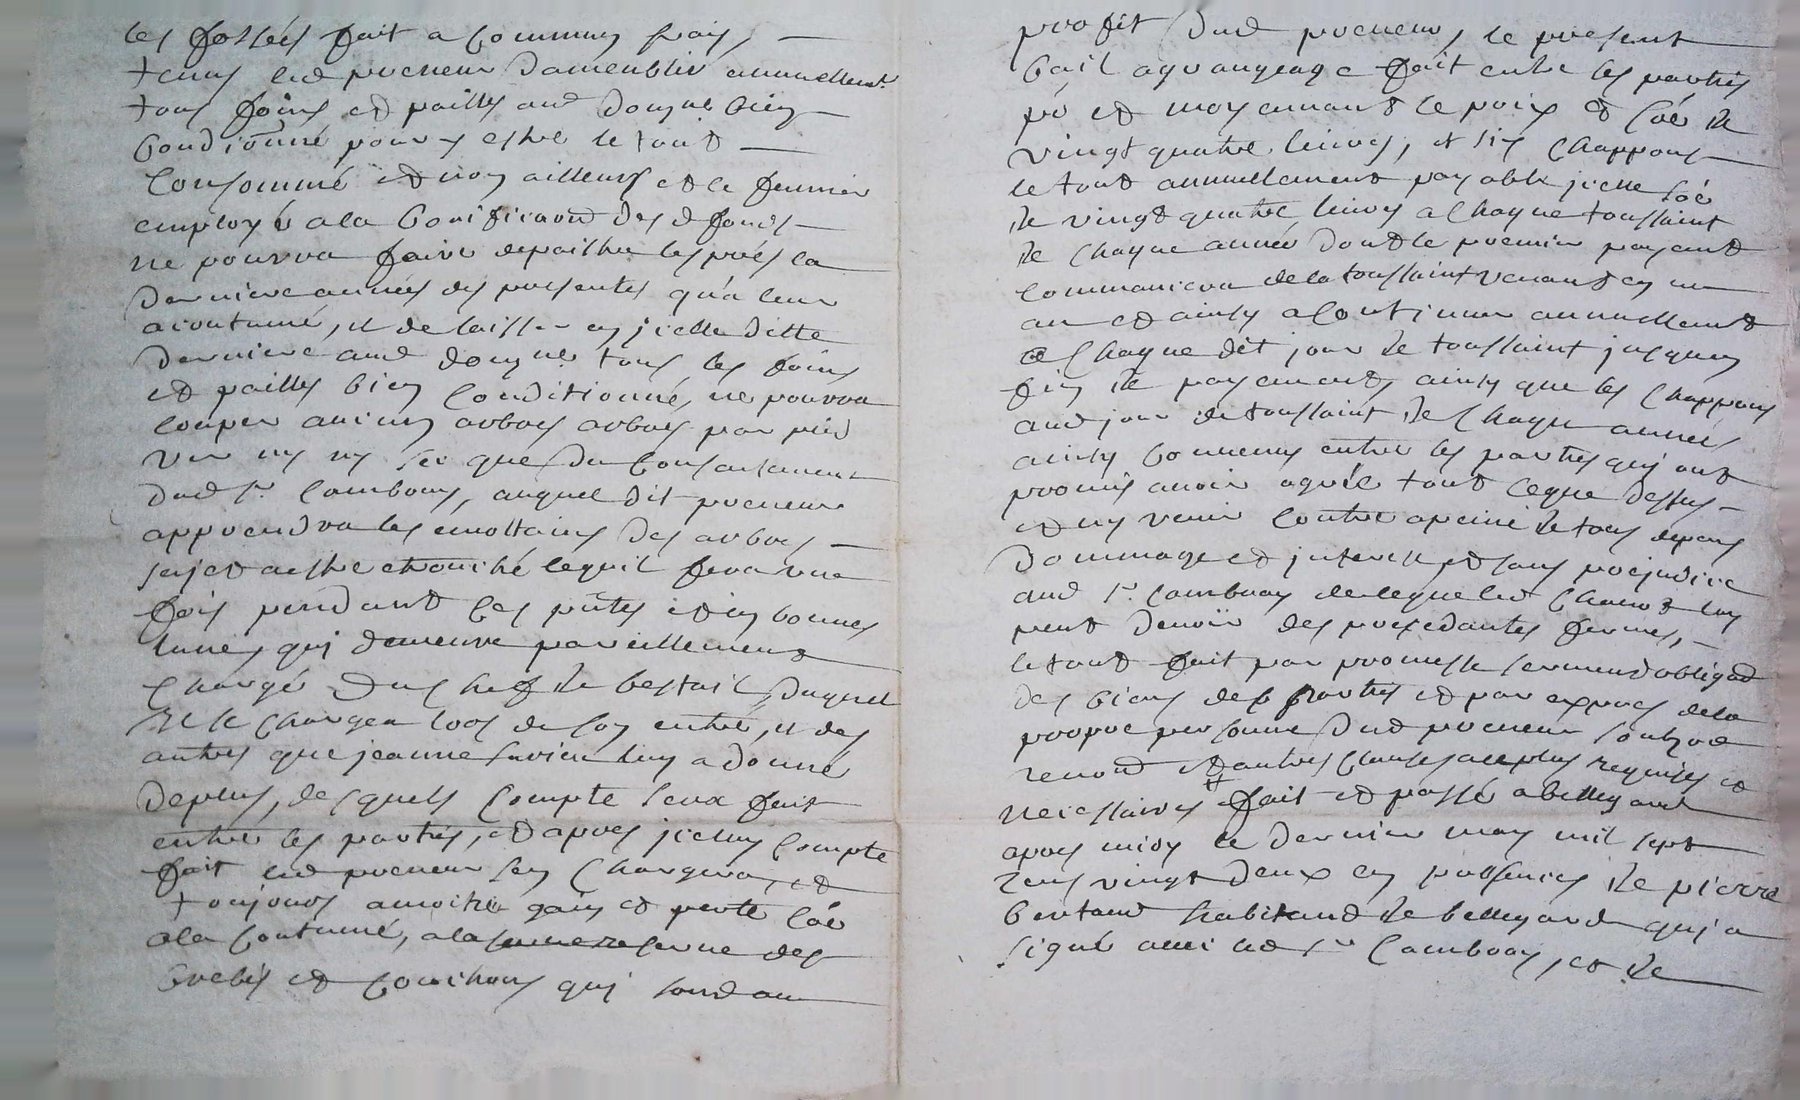 les fossés fait a commun frais,
tenus led preneur dameublir annuellemt.
tous foins et pailles aud domne bien
condionné pour y estre le tout
consommé et non ailleurs et le fumier
employé a la bonificaon desd fonds
ne pourra faire depaistre les prés la
derniere années des presentes qu'a leur
acoutumé, et de laisser en jcelle ditte
derniere aud domne tous les foins
et pailles bien conditionné, ne pourra
couper aucuns arbres arbres par pied
ver ny sec que du consantement
dud sr. Cambray, auquel dit preneur
apprendra les emottains des arbres
sujet a estre etronché lequil fera une
fois pendant les pntes et en bonnes
lunes, qui demeure pareillement
chargé du chef de bestail duquel
Il se chargea lors de son entré, et des
autres que jeanne luy a donné
depluy, desquels compte sera fait
entre les parties, et apres jceluy compte
fait led preneur sen chargera, et
toujours a moitié gain et perte
a la coutume, a la reserve des
brebis et cochons qui sont au
profit dud preneur, le present
bail a grangeage fait entre les parties
et moyennant le prix et sôe de
vingt quatre livres, et six chappons
le tout annuellement payable jcelle sôe
de vingt quatre livres a chaque toussaint
de chaque année dont le premier payemt
commancera de la toussaint venant en un
an et ainsy a continuer annuellement
a chaque dit jour de toussaint jusques
fin de payement, ainsy que les chappons
aud jour de toussaint de chaque année
ainsy convenu entre les parties qui ont
promis avoir agréé tout ceque dessus
et ny venir contre a peine de tous depens
dommage et jnterest et sans prejudice
aud sr. Cambray de ce que led luy
peut devoir des precedantes fermes,
le tout fait par promesse serment obligaon
des biens des parties et par expres de la
propre personne dud preneur soubz
renonon et autres clauses au plus requises et
necessaires fait et passé a bellegarde
apres midy le dernier may mil sept
cens vingt deux en presences de pierre
bertand habitand de bellegarde qui a
signé avec led sr Cambray, et de